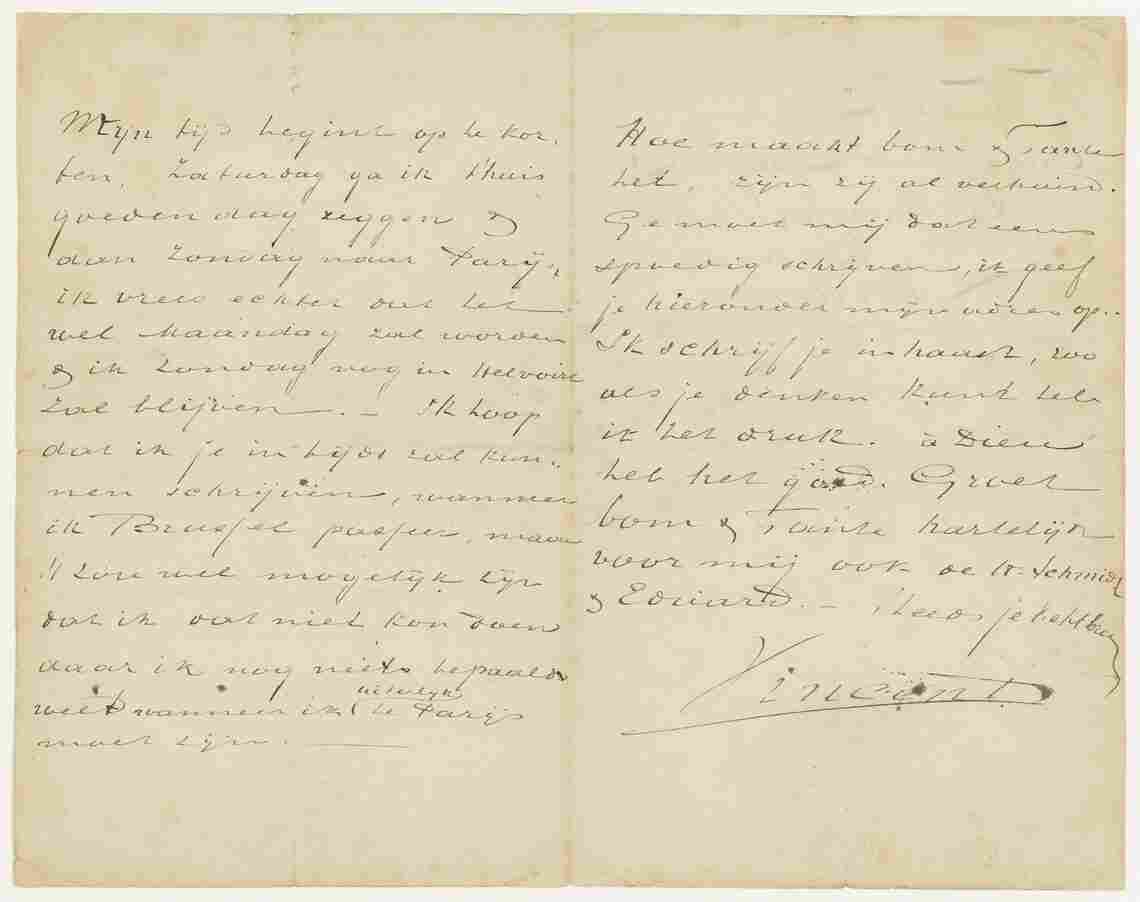 Mijn tijd begint op te kor-
ten, Zaturdag ga ik t'huis
goeden dag zeggen &
dan Zondag naar Parijs,
ik vrees echter dat het
wel Maandag zal worden
& ik Zondag nog in Helvoirt
zal blijven. – Ik hoop
dat ik je in tijds zal kun-
nen schrijven, wanneer
ik Brussel passeer, maar
't zou wel mogelijk zijn
dat ik dat niet kon doen
daar ik nog niets bepaalds
weet wanneer ik uiterlijk te Parijs
moet zijn.
Hoe maakt oom & Tante
het, zijn zij al verhuisd.
Ge moet mij dat eens
spoedig schrijven, ik geef
je hieronder mijn adres op..
Ik schrijf je in haast, zoo
als je denken kunt heb
ik het druk. à Dieu
heb het goed. Groet
oom & Tante hartelijk
voor mij ook de Hr. Schmidt
& Eduard. – Steeds je liefh. broer
Vincent